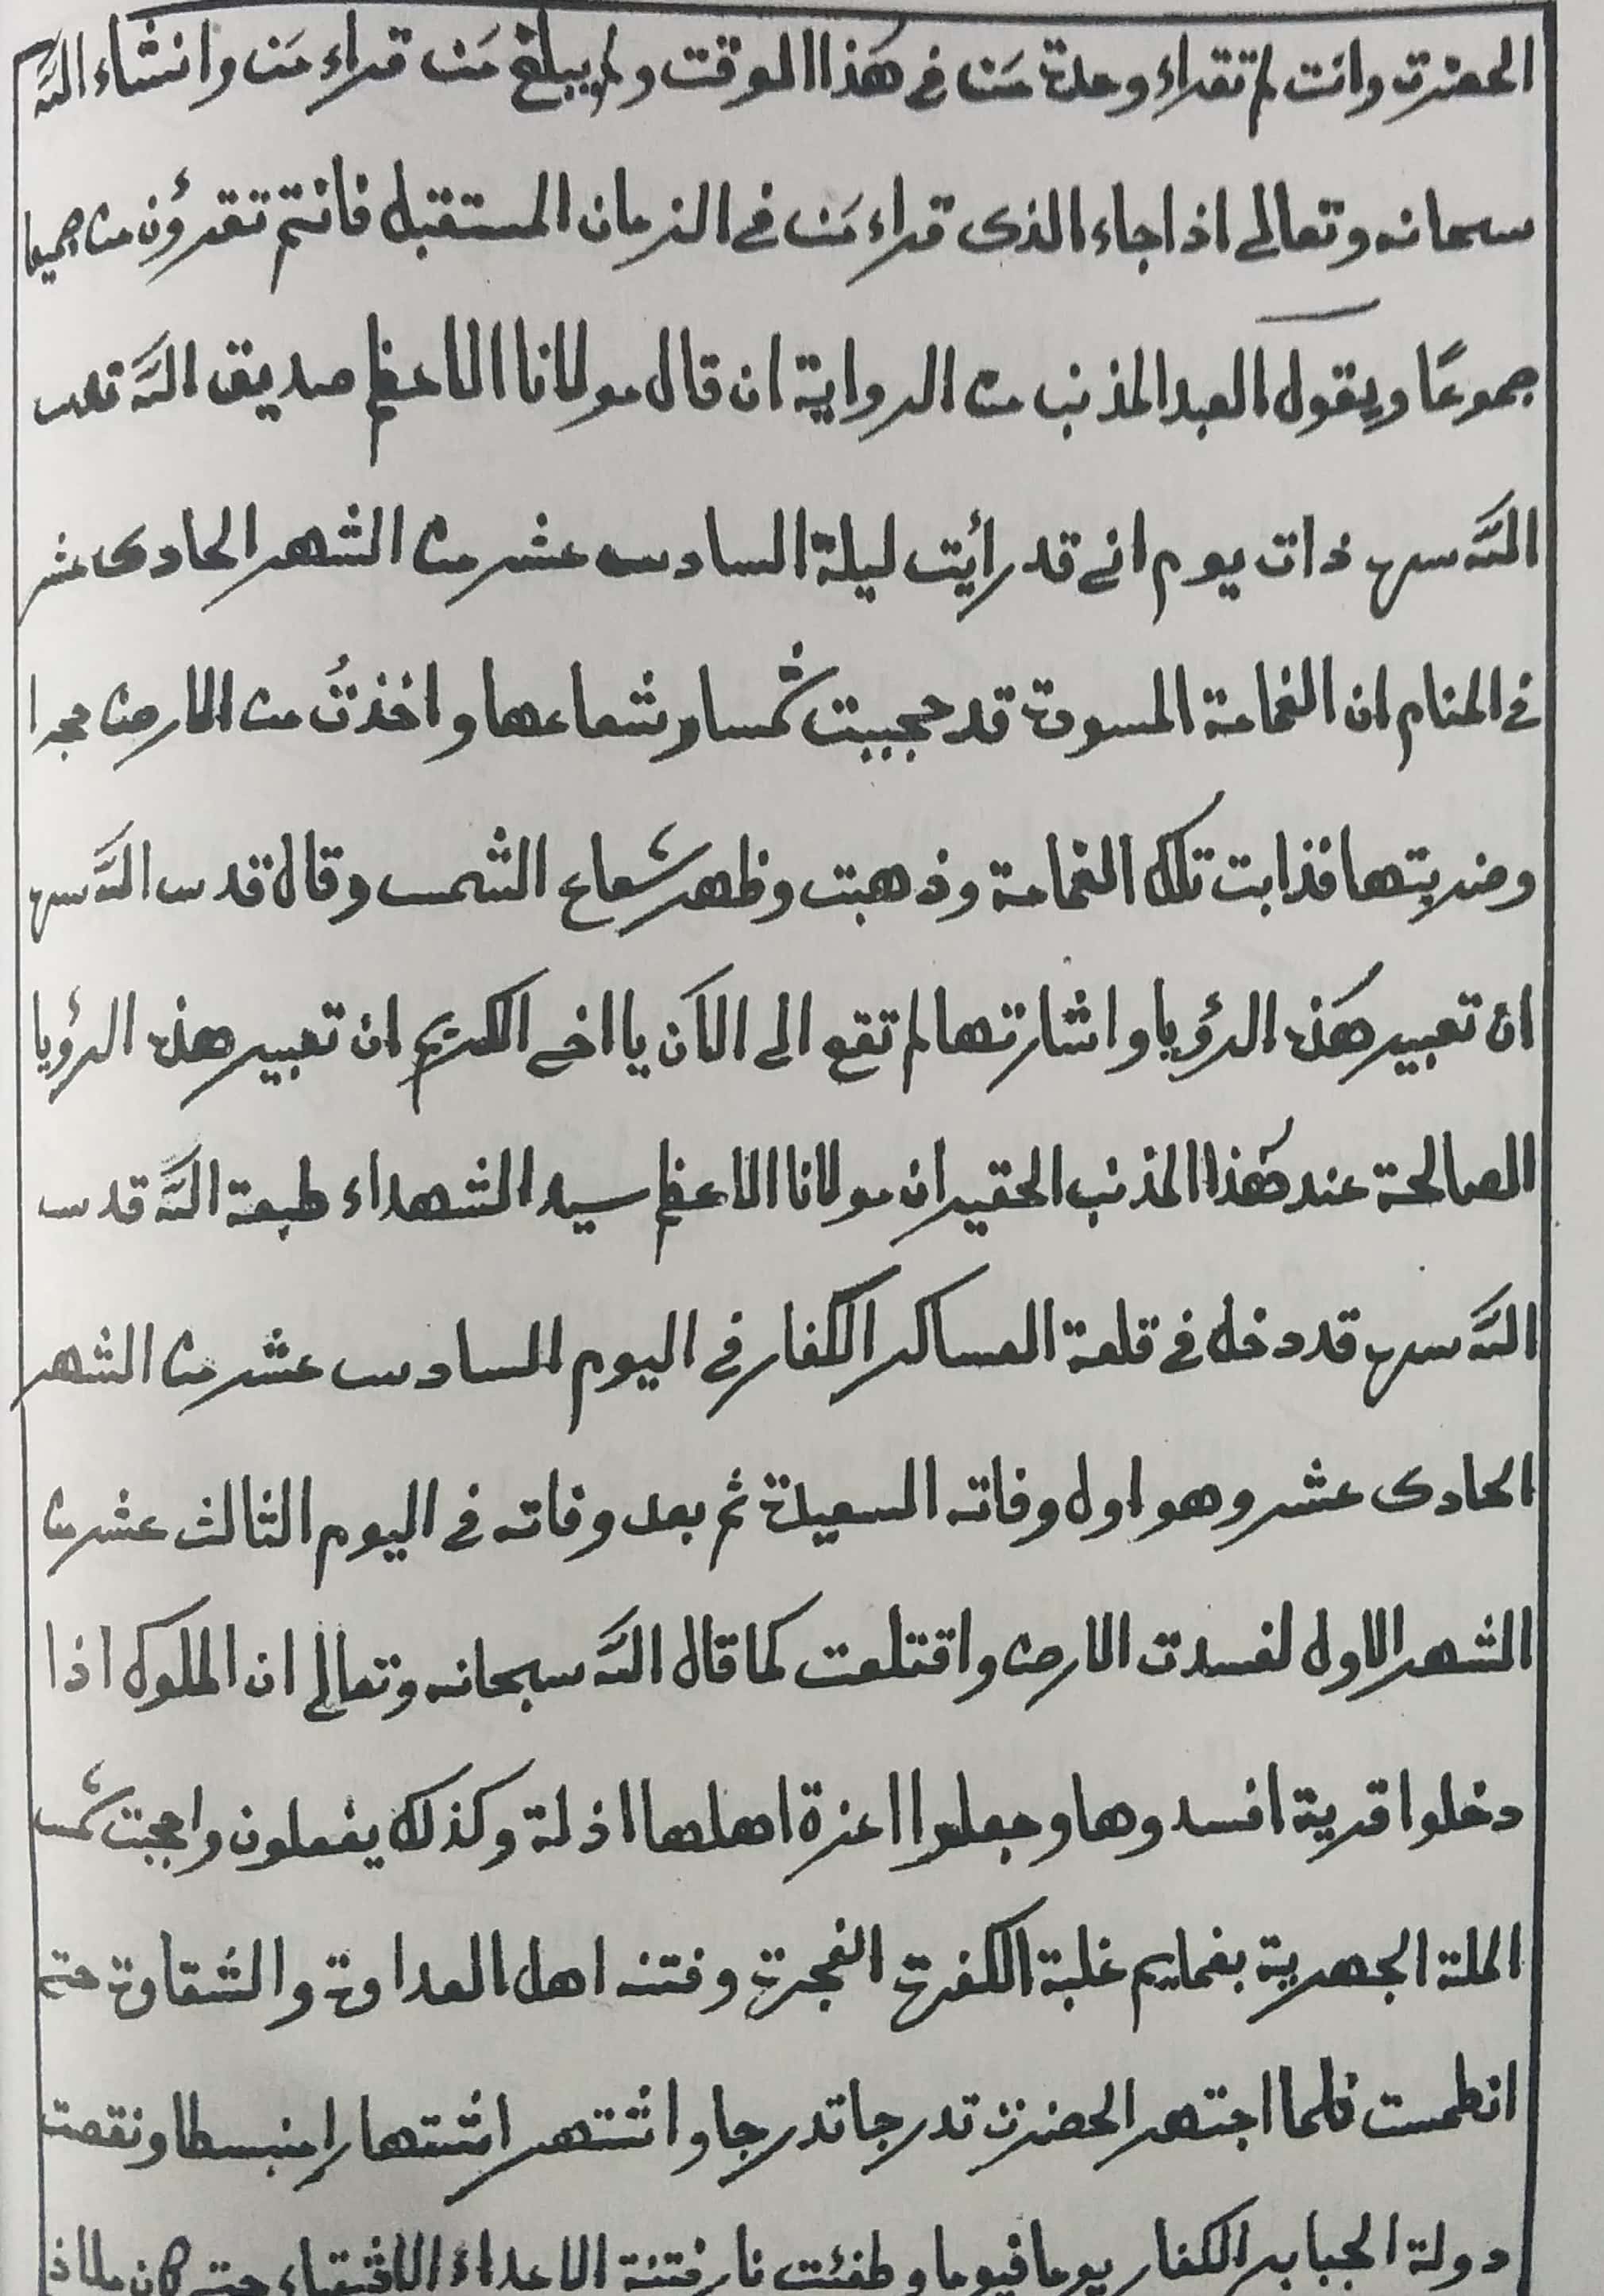 الحضرت وانت لم تقراء وحدة مَن في هٰذا الموقت ولم يبلغ مَن قراء مَن وانشاء اللّٰه
سبحانه وتعالى اذا جاء الذى قراء مَن في الزمان المستقبل فانتم تقرؤن من جميعا
جموعًا ويقول العبد المذنب من الرواية ان قال مولانا الاعظم صديق اللّٰه قدس
اللّٰه سره ذات يوم اني قد رأيت ليلة السادس عشر من الشهر الحادى عشر
في المنام ان الغمامة المسودة قد حجبيت شمسا وشعاعها واخذتُ من الارض حجرا
وضربتها فذابت تلك الغمامة وذهبت وظهر شعاع الشمس وقال قدس اللّٰه سره
ان تعبير هٰذه الرؤيا واشارتها لم تقع الى الآن يا اخى الكريم ان تعبير هذه الرؤيا
الصالحة عند هٰذا المذنب الحقير ان مولانا الاعظم سيد الشهداء طبعة اللّٰه قدس
اللّٰه سره قد دخل في قلعة العساكر الكفار في اليوم السادس عشر من الشهر
الحادى عشر وهو اول وفاته السعيدة ثم بعد وفاته في اليوم الثالث عشر من
الشهر الاول لفسدت الارض واقتلعت كما قال اللّٰه سبحانه وتعالى ان الملوك اذا
دخلوا قرية افسدوها وجعلوا اعزة اهلها اذلة وكذلك يفعلون واحجبت شمس
الملة الجهرية بغمايم غلبة الكفرة الفجرة وفتنه اهل العداوة والشقاوة حتى
انطمست فلما اجتهر الحضرت تدرجا تدرجا واشتهر اشتهارا منبسطا ونقصت
دولة الجبابر الكفار يوما فيوما وطفئت نار فتنة الاعداء الاشقياء حتى كان ملاذ